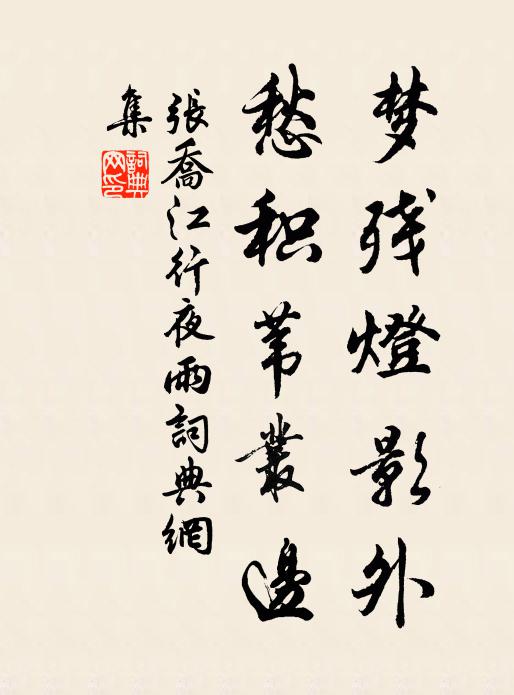 梦残燈影外
愁积苇叢邊
張喬江行夜雨詞典網
集
詞典網印